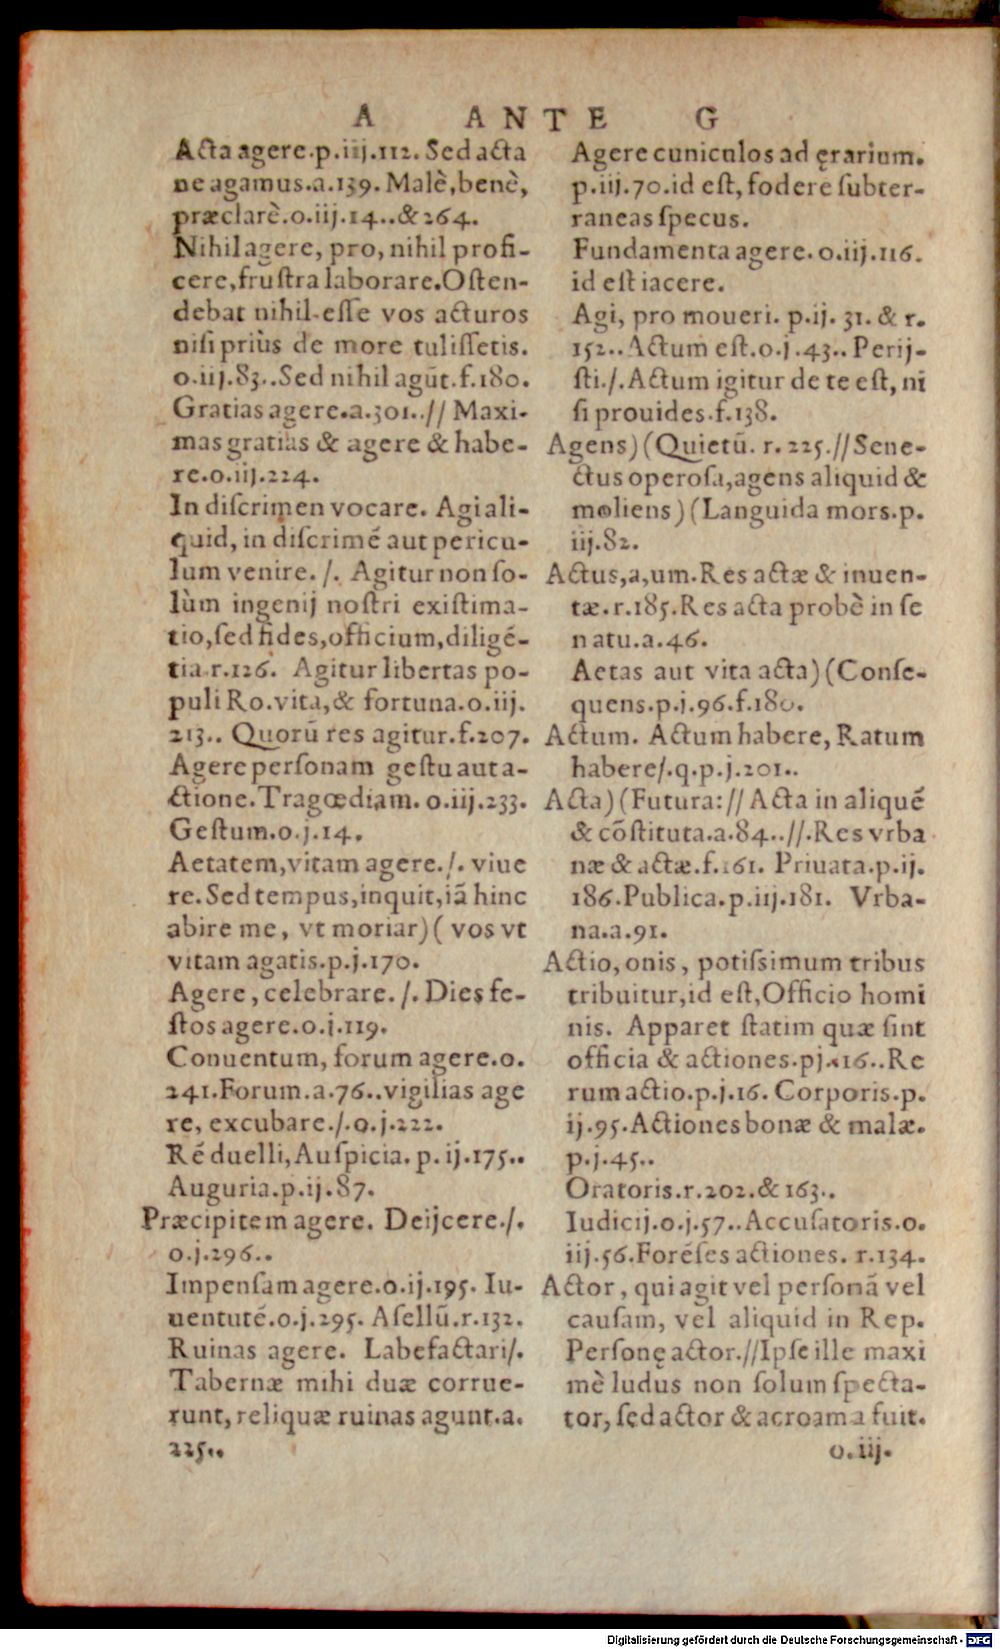 A ANTE G
Acta agere.p.iij.112. Sed acta
ne agamus.a.139. Malè,benè,
præclarè.o.iij.14..&264.
Nihil agere, pro, nihil profi-
cere,frustra laborare.Osten-
debat nihil esse vos acturos
nisi priùs de more tulissetis.
o.iij.83..Sed nihil agũt.f.180.
Gratias agere.a.301..// Maxi-
mas gratias & agere & habe-
re.o.iij.224.
In discrimen vocare. Agi ali-
quid, in discrimé aut pericu-
lum venire./. Agitur non so-
lùm ingenij nostri existima-
tio,sed fides,officium,diligé-
tia.r.126. Agitur libertas po-
puli Ro.vita,& fortuna.o.iij.
213.. Quorũ res agitur.f.207.
Agere personam gestu aut a-
ctione.Tragœdiam. o.iij.233.
Gestum.o.j.14.
Aetatem,vitam agere./. viue
re.Sed tempus,inquit,iã hinc
abire me, vt moriar)( vos vt
vitam agatis.p.j.170.
Agere, celebrare./. Dies fe-
stos agere.o.j.119.
Conuentum, forum agere.o.
241.Forum.a.76..vigilias age
re, excubare./.o.j.222.
Ré duelli,Auspicia.p.ij.175..
Auguria.p.ij.87.
Præcipitem agere. Deijcere./.
o.j.296..
Impensam agere.o.ij.195. Iu-
uentuté.o.j.295. Asellũ.r.132.
Ruinas agere. Labefactari/.
Tabernæ mihi duæ corrue-
runt,reliquæ ruinas agunt.a.
225..
Agere cuniculos ad ęrarium.
p.iij.70.id est, fodere subter-
raneas specus.
Fundamenta agere.o.iij.116.
id est iacere.
Agi, pro moueri. p.ij. 31. & r.
152..Actum est.o.j.43.. Perij-
sti./.Actum igitur de te est, ni
si prouides.f.138.
Agens)(Quietũ. r. 225.// Sene-
ctus operosa,agens aliquid &
moliens)(Languida mors.p.
iij.82.
Actus,a,um.Res actæ & inuen-
tæ.r.185.Res acta probè in se
natu.a.46.
Aetas aut vita acta)(Conse-
quens.p.j.96.f.180.
Actum. Actum habere, Ratum
habere/.q.p.j.201..
Acta)(Futura:// Acta in aliqué
& cõstituta.a.84..//.Res vrba
næ & actæ.f.161. Priuata.p.ij.
186.Publica.p.iij.181. Vrba-
na.a.91.
Actio, onis, potissimum tribus
tribuitur,id est,Officio homi
nis. Apparet statim quæ sint
officia & actiones.pj.16..Re
rum actio.p.j.16. Corporis.p.
ij.95.Actiones bonæ & malæ.
p.j.45..
Oratoris.r.202.&163..
Iudicij.o.j.57..Accusatoris.o.
iij.56.Foréses actiones. r.134.
Actor, qui agit vel personã vel
causam, vel aliquid in Rep.
Personę actor.//Ipse ille maxi
mè ludus non solum specta-
tor, sed actor & acroama fuit.
o.iij.
Digitalisierung gefördert durch die Deutsche Forschungsgemeinschaft - DFG